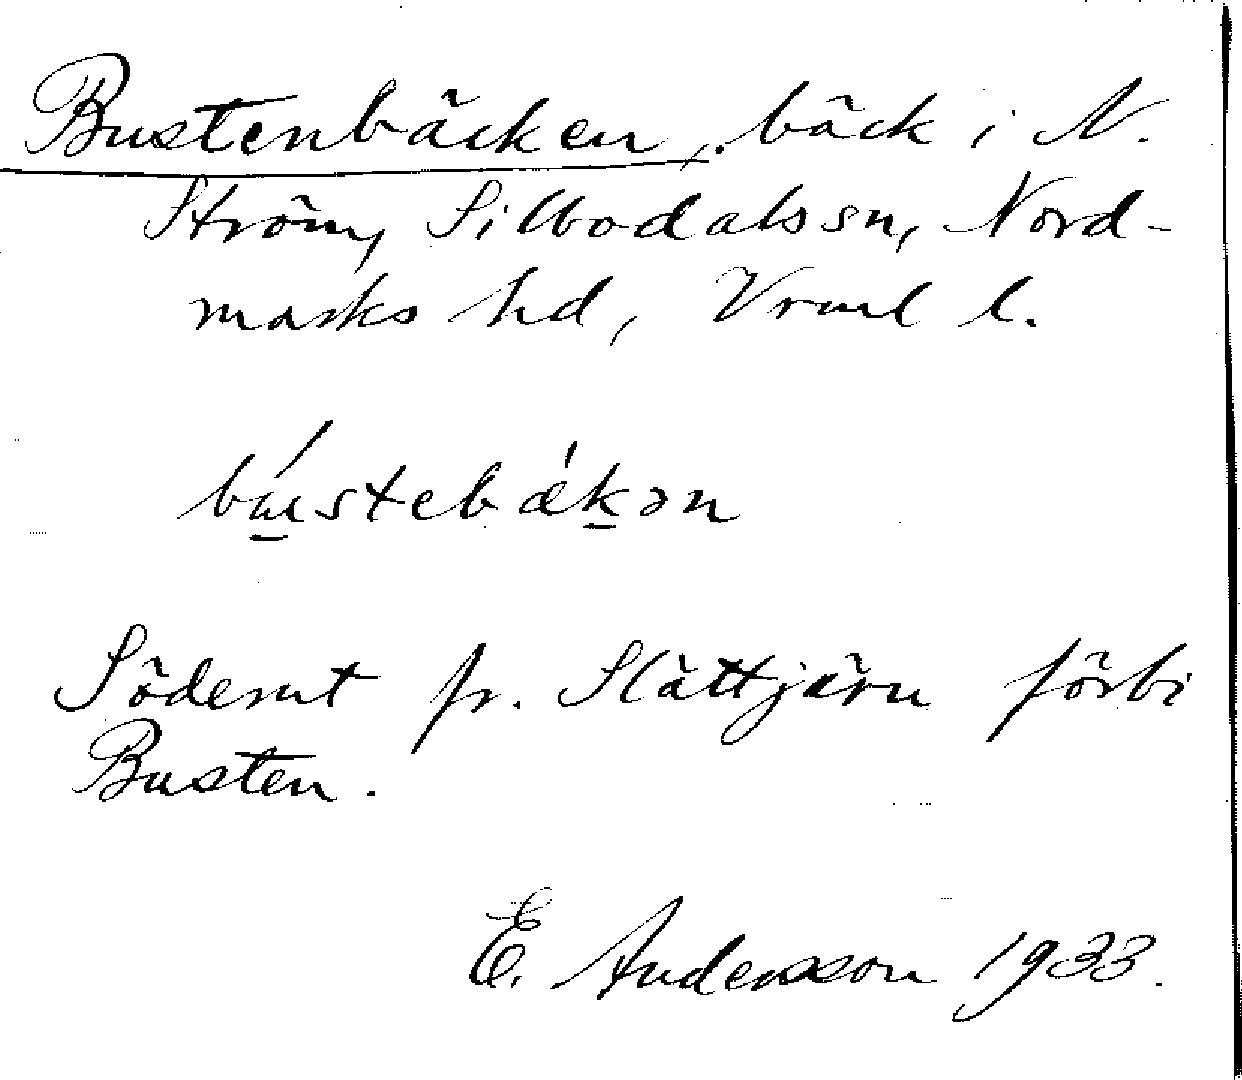 Bustenbäcken, bäck i N.
Ström, Silbodals sn, Nord-
marks hd, Vrml l.
bú̱stebǽḵən
Söderut fr. Slättjärn förbi
Busten.
E. Andersson 1933.